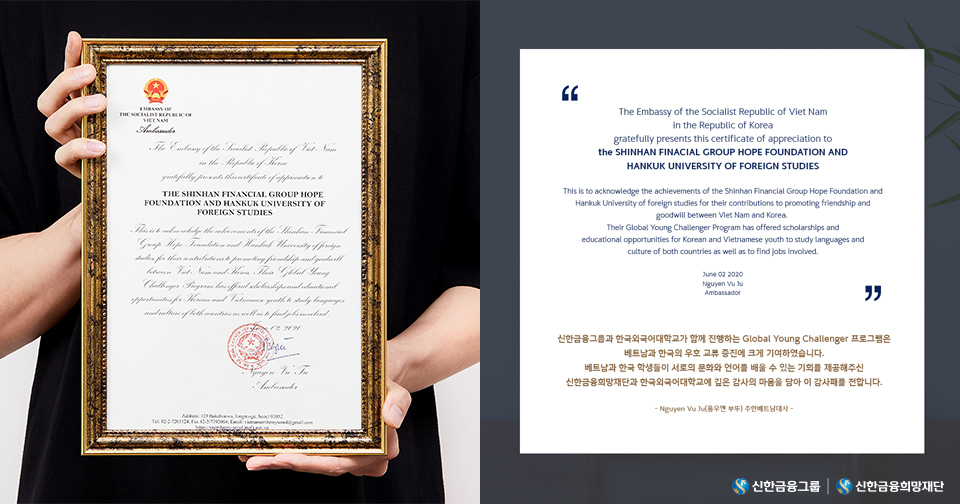 EMBASSY OF
THE SOCIALIST REPUBLIC OF
VIET NAM
Ambassador
The Embassy of the Socialist Republic of Viet Nam
in the Republic of Korea
gratefully presents this certificate of appreciation to
THE SHINHAN FINANCIAL GROUP HOPE
FOUNDATION AND HANKUK UNIVERSITY OF
FOREIGN STUDIES
This is to acknowledge the achievements of the Shinhan Financial
Group Hope Foundation and Hankuk University of foreign
studies for their contributions to promoting friendship and goodwill
between Viet Nam and Korea. Their Global Young
Challenger Program has offered scholarships and educational
opportunities for Korean and Vietnamese youth to study languages
and culture of both countries as well as to find jobs involved.
02, 2020
Nguyen Vu Tu
Ambassador
“
The Embassy of the Socialist Republic of Viet Nam
in the Republic of Korea
gratefully presents this certificate of appreciation to
the SHINHAN FINACIAL GROUP HOPE FOUNDATION AND
HANKUK UNIVERSITY OF FOREIGN STUDIES
This is to acknowledge the achievements of the Shinhan Financial Group Hope Foundation and
Hankuk University of foreign studies for their contributions to promoting friendship and
goodwill between Viet Nam and Korea.
Their Global Young Challenger Program has offered scholarships and
educational opportunities for Korean and Vietnamese youth to study languages and
culture of both countries as well as to find jobs involved.
June 02 2020
Nguyen Vu Ju
Ambassador
”
신한금융그룹과 한국외국어대학교가 함께 진행하는 Global Young Challenger 프로그램은
베트남과 한국의 우호 교류 증진에 크게 기여하였습니다.
베트남과 한국 학생들이 서로의 문화와 언어를 배울 수 있는 기회를 제공해주신
신한금융희망재단과 한국외국어대학교에 깊은 감사의 마음을 담아 이 감사패를 전합니다.
- Nguyen Vu Ju(응우옌 부뚜) 주한베트남대사 -
신한금융그룹 | 신한금융희망재단